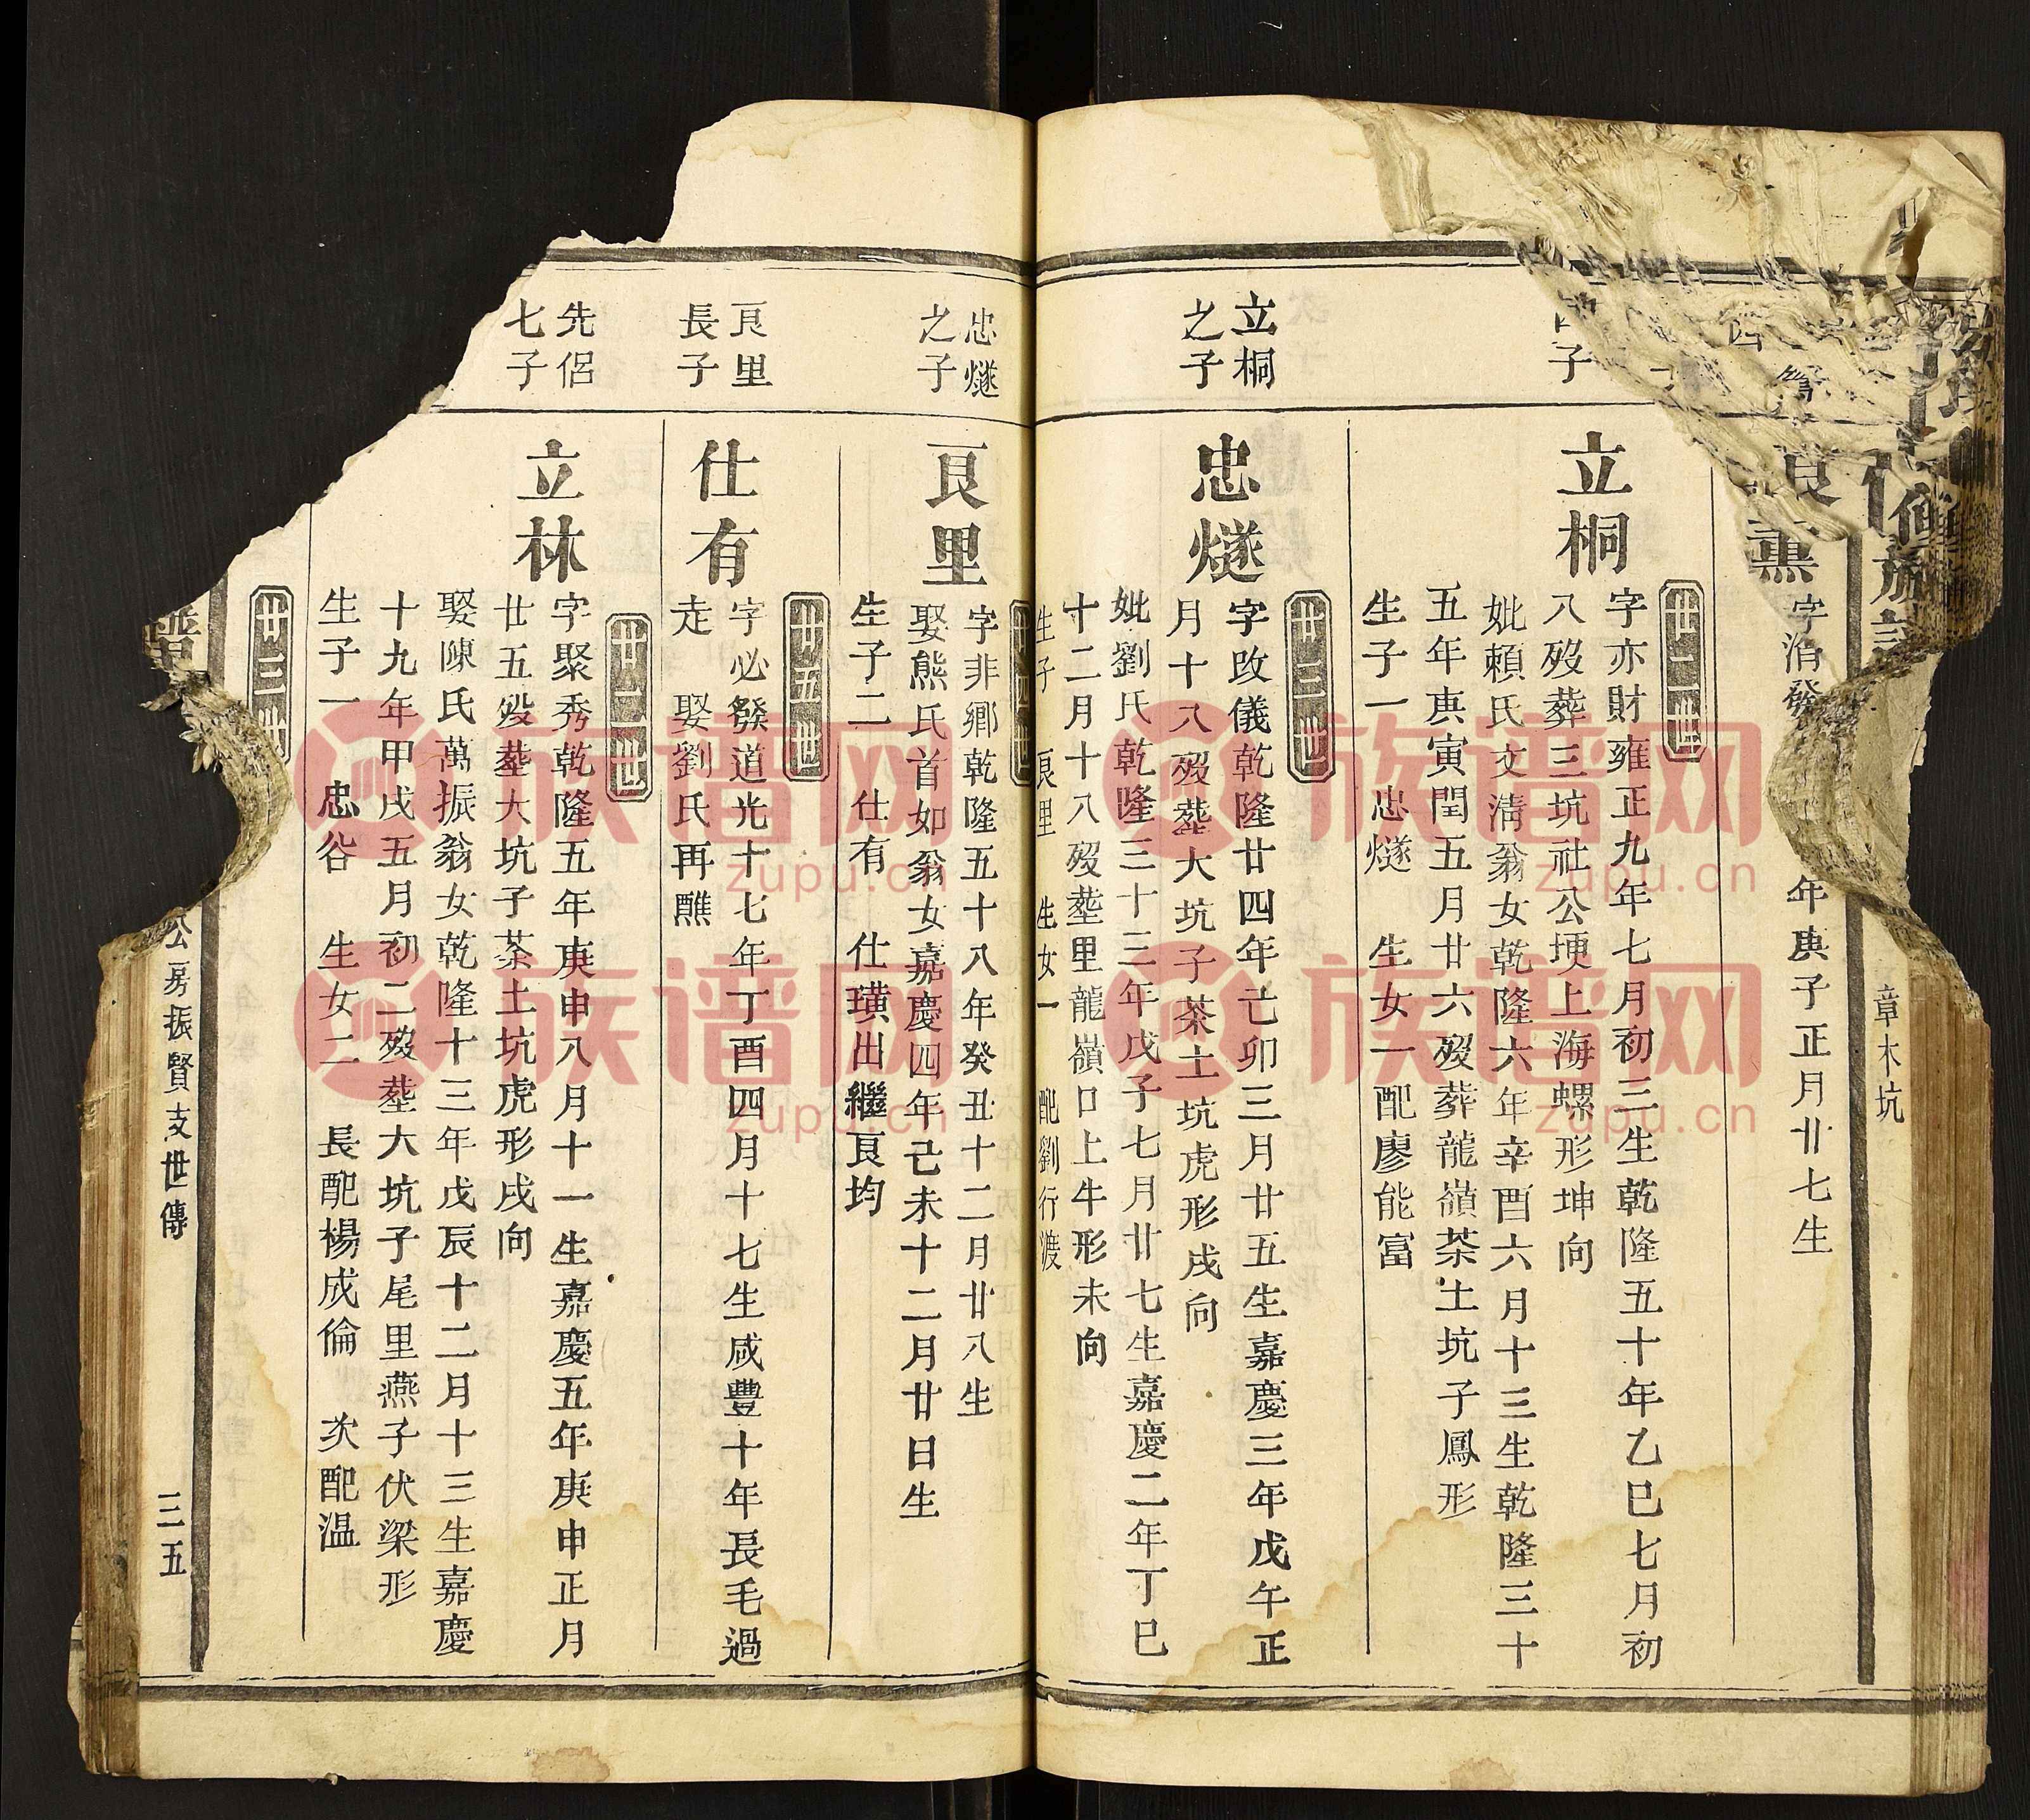 章木坑
字涓發
年庚子正月廿七生
廿二世
子
立桐
字亦財雍正九年七月初三生乾隆五十年乙巳七月初
八歿葬三坑社公埂上海螺形坤向
妣賴氏文清翁女乾隆六年辛酉六月十三生乾隆三十
五年庚寅閏五月廿六歿葬龍嶺茶土坑子鳳形
生子一 忠燧 生女一配廖能富
廿三世
立桐
之子
忠燧
字改儀乾隆廿四年己卯三月廿五生嘉慶三年戊午正
月十八歿塟大坑子茶土坑虎形戌向
妣劉氏乾隆三十三年戊子七月廿七生嘉慶二年丁巳
十二月十八歿塟里龍嶺口上牛形未向
生子 良里 生女一 配劉行渡
廿四世
忠燧
之子
良里
字非鄉乾隆五十八年癸丑十二月廿八生
娶熊氏首如翁女嘉慶四年己未十二月廿日生
生子二 仕有 仕璜出繼良均
廿五世
良里
長子
仕有
字必發道光十七年丁酉四月十七生咸豐十年長毛過
走 娶劉氏再醮
廿二世
先侶
七子
立林
字聚秀乾隆五年庚申八月十一生嘉慶五年庚申正月
廿五歿塟大坑子茶土坑虎形戌向
娶陳氏萬振翁女乾隆十三年戊辰十二月十三生嘉慶
十九年甲戌五月初二歿塟大坑子尾里燕子伏梁形
生子一 忠谷 生女二 長配楊成倫 次配溫
廿三世
譜
公房振賢支世傳
三五
族谱网
zupu.cn
族谱网
zupu.cn
族谱网
zupu.cn
族谱网
zupu.cn